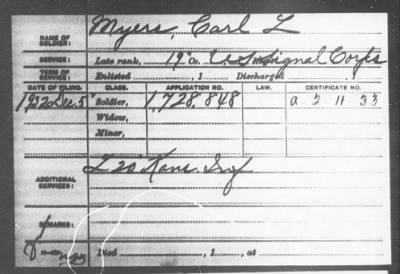 NAME OF SOLDIER: Myers, Carl L
SERVICE: Late rank, 19" Co. U.S. Signal Corps
TERM OF SERVICE: Enlisted , 1 Discharged
DATE OF FILING. CLASS. APPLICATION NO. LAW. CERTIFICATE NO.
1932 Dec. 5" Soldier, 1,728,848 a 2 11 33
Widow,
Minor,
ADDITIONAL SERVICES: L 20 Kans. Inf
REMARKS:
Died , 1 , at